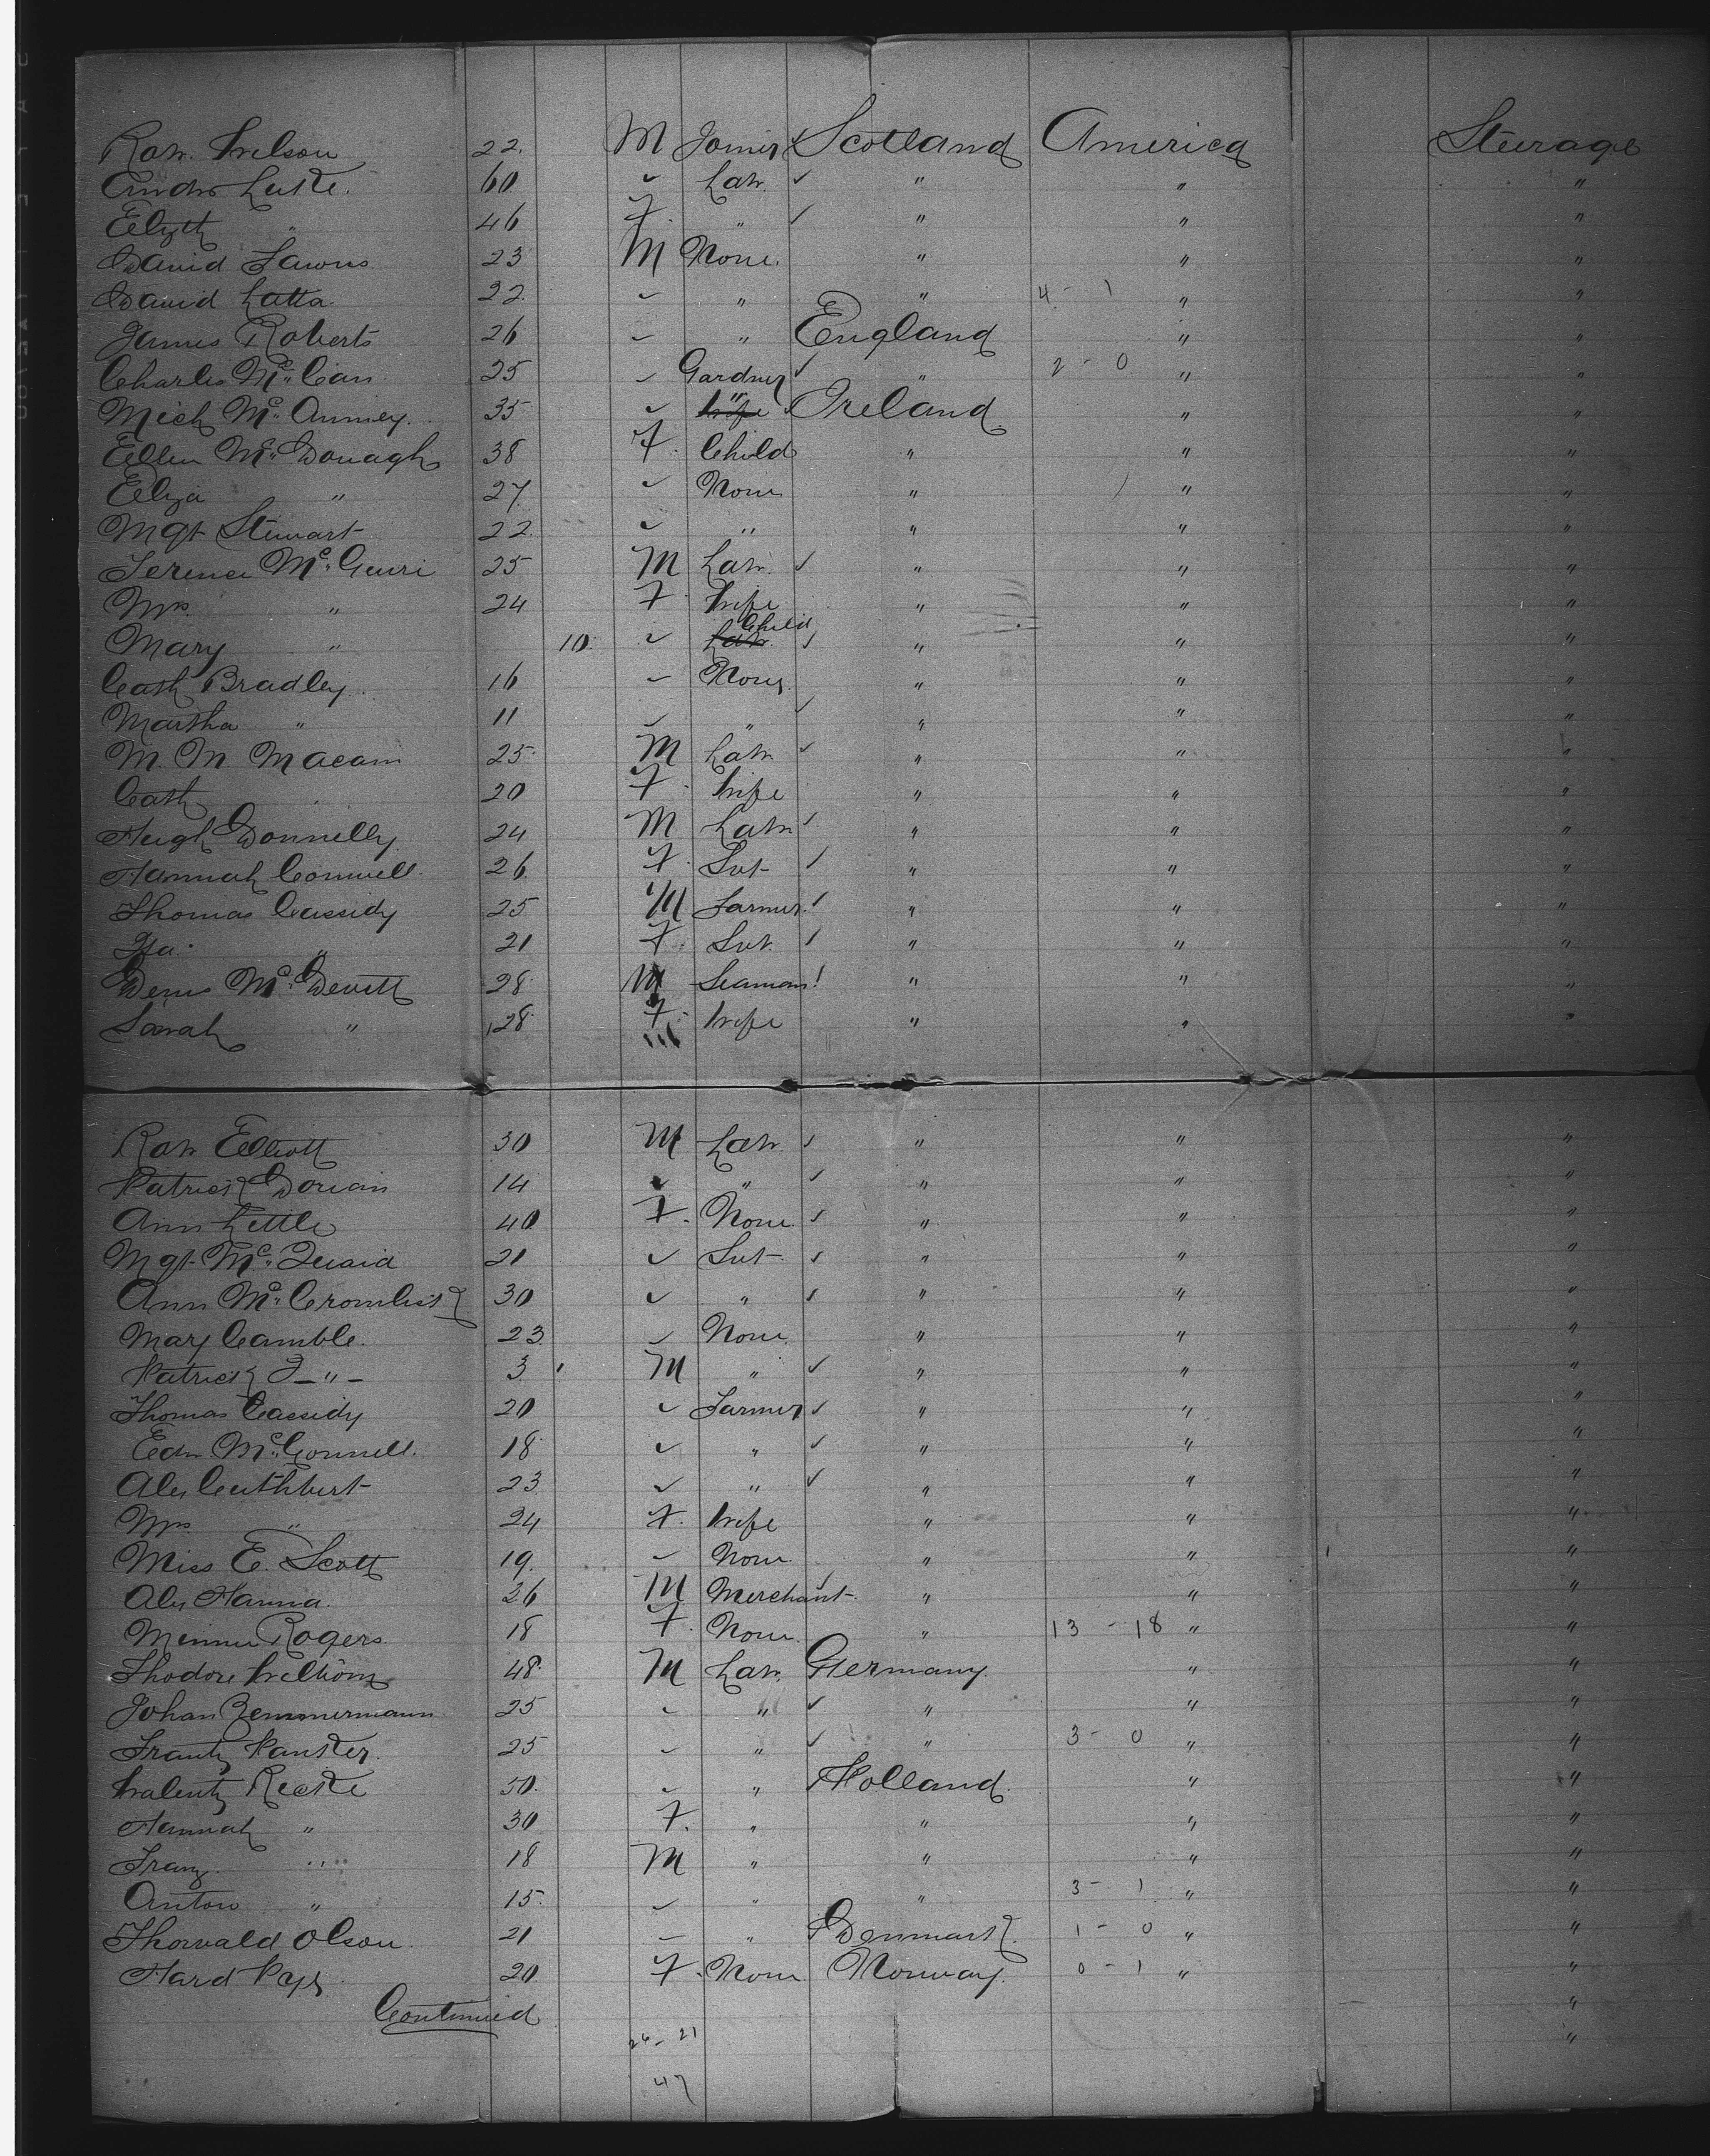 Robt. Wilson 22. M Joiner Scotland America Steerage
Andw Luke. 60 " Labr. " " "
Elizth " 46 F. " " " "
David Lawns 23 M None. " " "
David Latta. 22. " " " 4 - 1 " "
James Roberts 26 " " England " "
Charles Mc.Can 25 " Gardner " 2 - 0 " "
Mich Mc.Anney. 35 " " Ireland " "
Ellen Mc.Donagh 38 F. Child " " "
Eliza " 27 " None " " "
Mgt Stewart 22. " " " " "
Terence Mc. 25 M Labr. " " "
Mrs. " 24 F. Wife " " "
Mary " 10. " Child " " "
Cath Bradley. 16 " None. " " "
Martha " 11 " " " " "
M. M. Macam 25. M Labr. " " "
Cath " 20 F. Wife " " "
Hugh Donnelly. 24 M Labr " " "
Hannah Connell. 26. F. Svt " " "
Thomas Cassidy 25 M Farmer. " " "
Isa. " 21 F. Svt. " " "
Denis Mc.Devitt 28 M Seaman " " "
Sarah " 28 F. Wife " " "
Robt Elliott 30 M Labr. " " "
Patrick Dorian 14 " " " " "
Ann Little 40 F. None. " " "
Mgt. Mc.Quaid 21 " Svt " " "
Ann Mc. 30 " " " " "
Mary Camble. 23. " None. " " "
Patrick J - " - 3 M " " " "
Thomas Cassidy 20 " Farmer " " "
Edw Mc.Connell. 18 " " " " "
Alex Cuthbert 23 " " " " "
Mrs " 24 F. Wife " " "
Miss E. Scott 19. " None. " " "
Alex Hanna. 26 M Merchant " " "
Minnie Rogers. 18 F. None. " 13 - 18 " "
Thodore 48. M Labr. Germany. " "
Johan Zemmermann 25 " " " " "
Frantz Pansker. 25 " " " 3 - 0 " "
Walentz Recke 50. " " Holland. " "
Hannah " 30 F. " " " "
Franz. " 18 M " " " "
Anton " 15. " " " 3 - 1 " "
Thorvald Olson. 21 " " Denmark. 1 - 0 " "
Hard 20 F. None Norway. 0 - 1 " "
Continued "
26 - 21 "
47